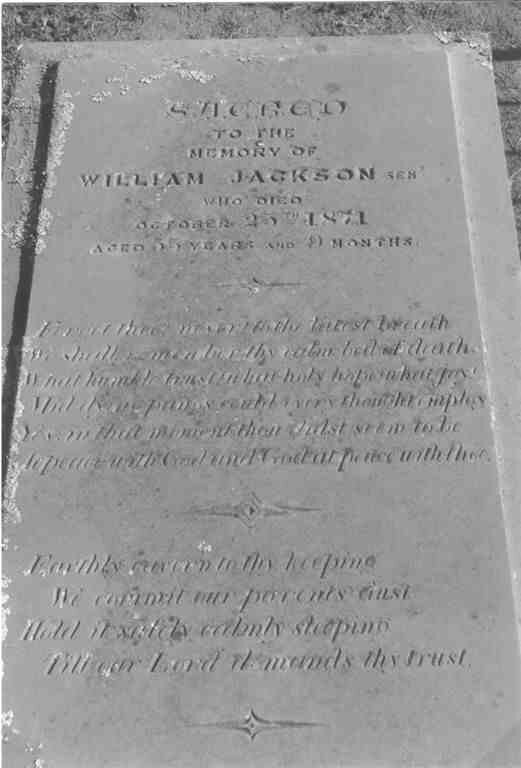 SACRED
TO THE
MEMORY OF
WILLIAM JACKSON SENR
WHO DIED
OCTOBER 25TH 1871
AGED YEARS AND 9 MONTHS.
Forget thee never to the latest breath
We shall remember thy calm bed of death.
What humble trust what holy hope what joys
Mid dying pangs could every thought employ
Yes in that moment thou didst seem to be
At peace with God and God at peace with thee.
Earthly cavern to thy keeping
We commit our parents dust
Hold it safely calmly sleeping
Till our Lord demands thy trust.